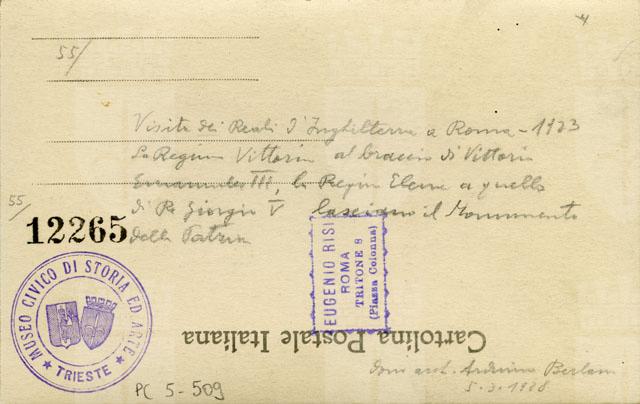 55/
Visita dei Reali d'Inghilterra a Roma - 1923
La Regina Vittoria al braccio di Vittorio
Emanuele III, la Regina Elena a quello
di Re Giorgio V lasciano il Monumento
della Patria
55/
12265
EUGENIO RISI
ROMA
TRITONE 8
(Piazza Colonna)
MUSEO CIVICO DI STORIA ED ARTE
★ TRIESTE ★
Cartolina Postale Italiana
dono arch. Arduino Berlam
5.3.1928
PC 5-509